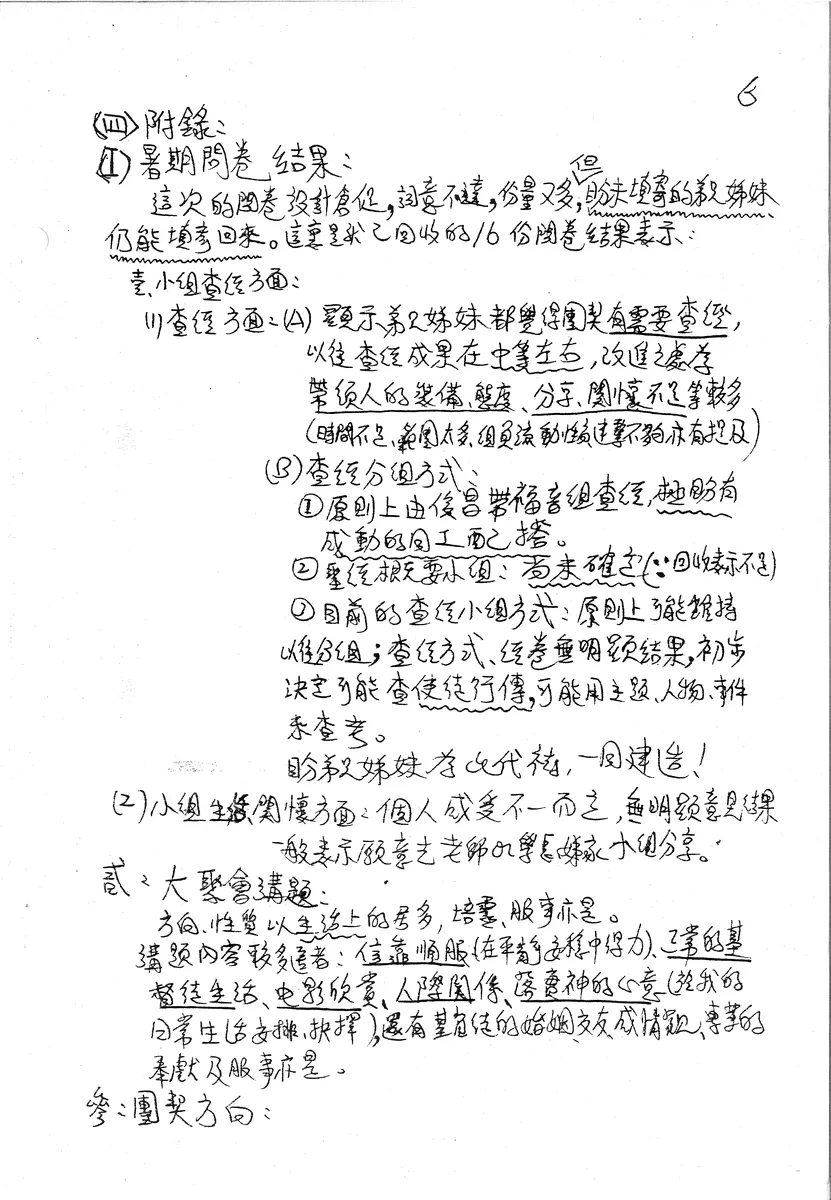 6
(四)附錄:
(1)暑期問卷結果:
這次的問卷設計倉促,詞意不達,份量又多,但盼未填寄的弟兄姊妹
仍能填寄回來。這裏是我已回收的16份問卷結果表示:
壹、小組查經方面:
(1)查經方面:(A)顯示弟兄姊妹都覺得團契有需要查經,
以往查經成果在中等左右,改進之處在
帶領人的裝備、態度、分享、關懷不足等較多
(時間不足、範圍太多、組員流動性連繫不夠亦有提及)
(B)查經分組方式:
①原則上由俊昌帶福音組查經,極盼有
感動的同工配搭。
②聖經概要小組:尚未確定(∵回收表示不足)
③目前的查經小組方式:原則上可能維持
以往分組;查經方式、經卷無明顯結果,初步
決定可能查使徒行傳,可能用主題、人物、事件
來查考。
盼弟兄姊妹在此代禱,一同建造!
(2)小組生活、關懷方面:個人感受不一而定,無明顯意見結果
一般表示願意去老師、學長姊家小組分享。
貳:大聚會講題:
方向、性質以生活上的居多,培靈、服事亦是。
講題內容較多選者:信靠順服(在平靜安穩中得力)、正常的基
督徒生活、電影欣賞、人際關係、落實神的心意(於我的
日常生活安排、抉擇),還有基督徒的婚姻、交友、感情觀、專業的
奉獻及服事亦是。
參:團契方向: